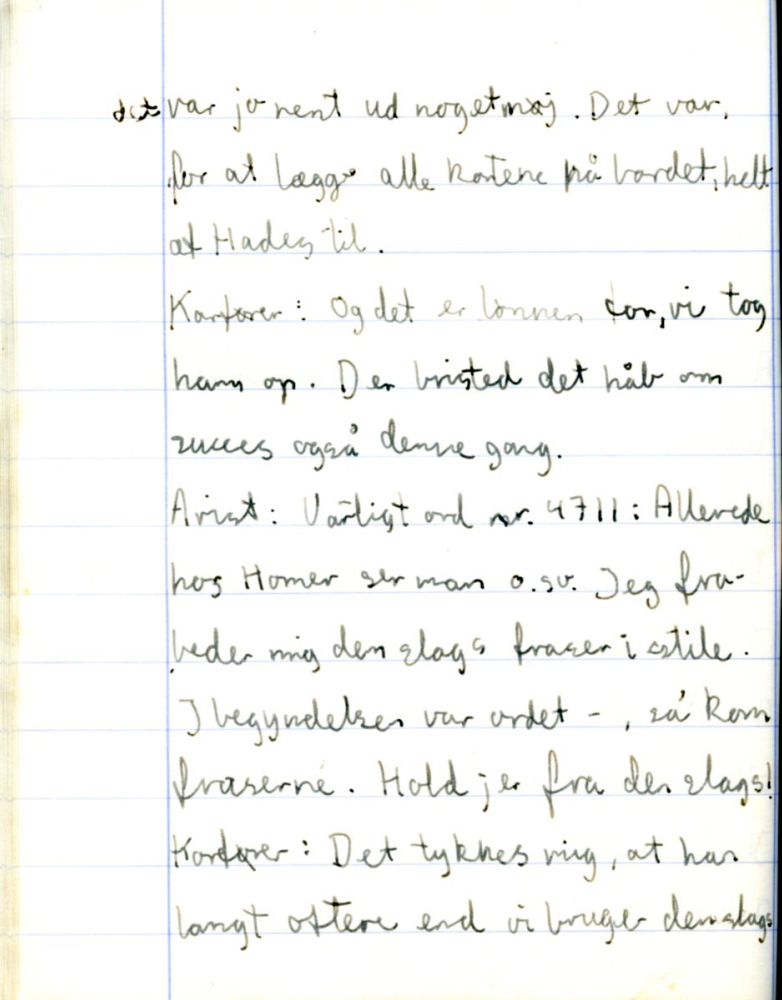 det var jo rent ud noget møj. Det var,
for at lægge alle kortene på bordet, helt
af Hades til.
Korfører: Og det er lønnen for, vi tog
ham op. Der bristed det håb om
succes også denne gang.
Arist: Vårligt ord nr. 4711: Allerede
hos Homer ser man o.sv. Jeg fra-
beder mig den slags fraser i stile.
I begyndelsen var ordet -, så kom
fraserne. Hold jer fra den slags!
Korfører: Det tykkes mig, at han
langt oftere end vi bruger den slags